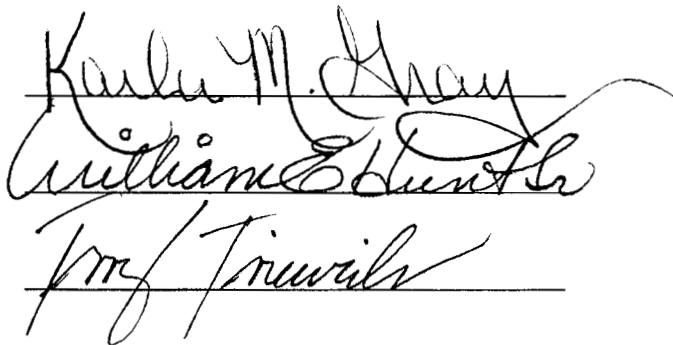 Karla M. Gray
William E Hunt Sr
Terry Trieweiler